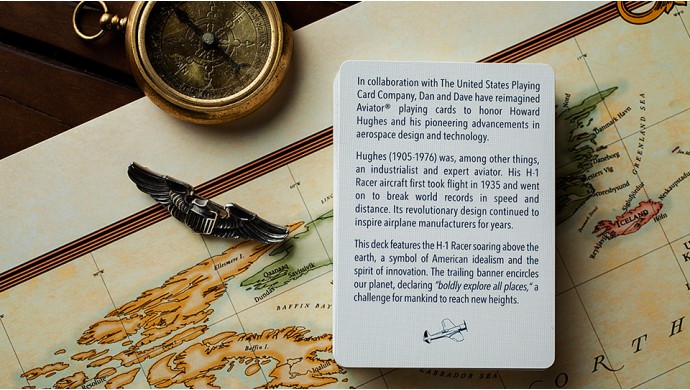 In collaboration with The United States Playing
Card Company, Dan and Dave have reimagined
Aviator® playing cards to honor Howard
Hughes and his pioneering advancements in
aerospace design and technology.
Hughes (1905-1976) was, among other things,
an industrialist and expert aviator. His H-1
Racer aircraft first took flight in 1935 and went
on to break world records in speed and
distance. Its revolutionary design continued to
inspire airplane manufacturers for years.
This deck features the H-1 Racer soaring above the
earth, a symbol of American idealism and the
spirit of innovation. The trailing banner encircles
our planet, declaring "boldly explore all places," a
challenge for mankind to reach new heights.
GREENLAND SEA
Danmark Havn
Daneborg
ICELAND
Höfn
Ellesmere I.
Qaanaaq
Savissivik
Dundas
BAFFIN BAY
Baffin I.
LABRADOR SEA
NORTH